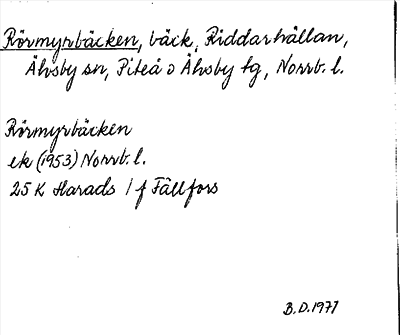 Rörmyrbäcken, bäck, Riddarhällan,
Älvsby sn, Piteå o Älvsby tg, Norrb. l.
Rörmyrbäcken
ek (1953) Norrb. l.
25 K Harads / f Fällfors
B.D. 1977